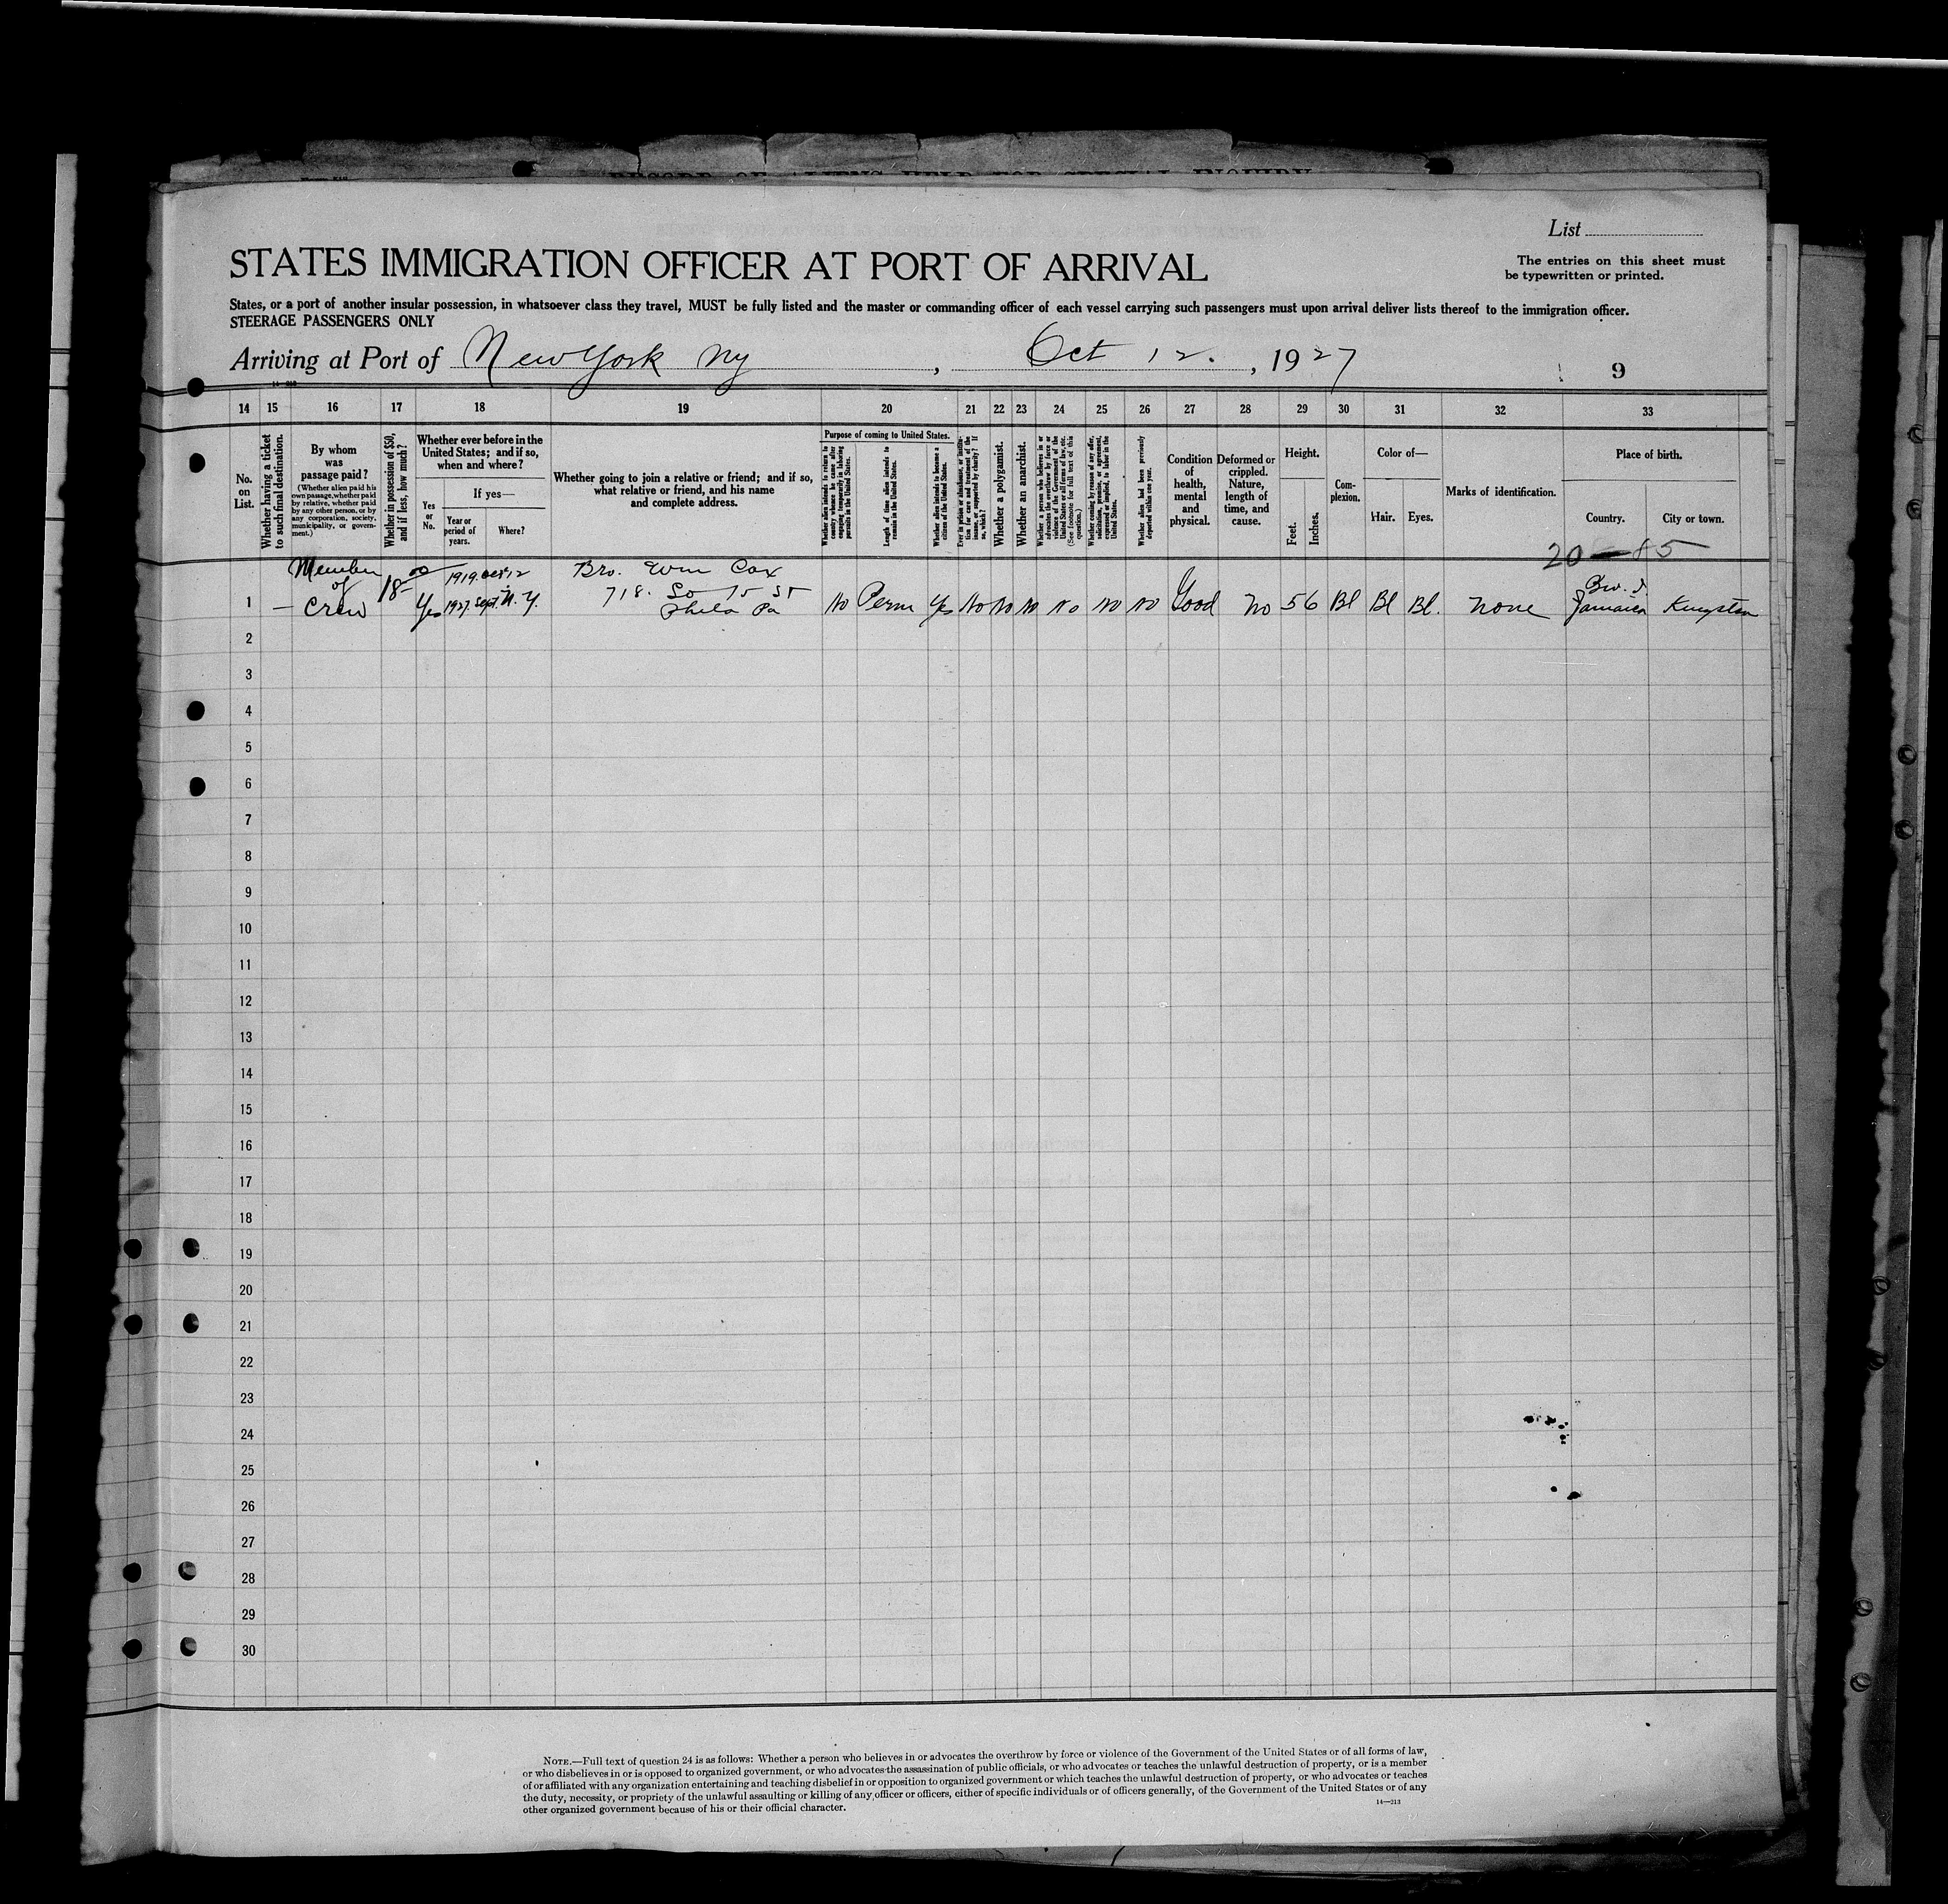 List
STATES IMMIGRATION OFFICER AT PORT OF ARRIVAL
The entries on this sheet must
be typewritten or printed.
States, or a port of another insular possession, in whatsoever class they travel, MUST be fully listed and the master or commanding officer of each vessel carrying such passengers must upon arrival deliver lists thereof to the immigration officer.
STEERAGE PASSENGERS ONLY
Arriving at Port of New York Ny, Oct 12., 1927
9
14 15 16 17 18 19 20 21 22 23 24 25 26 27 28 29 30 31 32 33
No. on List.
Whether having a ticket to such final destination.
By whom was passage paid?
(Whether alien paid his own passage, whether paid by relative, whether paid by any other person, or by any corporation, society, municipality, or government.)
Whether in possession of $50, and if less, how much?
Whether ever before in the United States; and if so, when and where?
Yes or No.
If yes—
Year or period of years.
Where?
Whether going to join a relative or friend; and if so, what relative or friend, and his name and complete address.
Purpose of coming to United States.
Whether alien intends to return to country whence he came after engaging temporarily in laboring pursuits in the United States.
Length of time alien intends to remain in the United States.
Whether alien intends to become a citizen of the United States.
Ever in prison or almshouse, or institution for care and treatment of the insane, or supported by charity? If so, which?
Whether a polygamist.
Whether an anarchist.
Whether a person who believes in or advocates the overthrow by force or violence of the Government of the United States or all forms of law, etc. (See footnote for full text of this question.)
Whether coming by reason of any offer, solicitation, promise, or agreement, expressed or implied, to labor in the United States.
Whether alien had been previously deported within one year.
Condition of health, mental and physical.
Deformed or crippled. Nature, length of time, and cause.
Height.
Feet. Inches.
Complexion.
Color of—
Hair. Eyes.
Marks of identification.
Place of birth.
Country. City or town.
20 — 85
Member 00 1919. Oct 12 Bro. Wm Cox B.W.I.
of 18 718. So 15 St
1 — Crew Yes 1927 Sept. N.Y. Phila Pa No Perm Yes No No No No No No Good No 5 6 Bl Bl Bl. none Jamaica Kingston
2
3
4
5
6
7
8
9
10
11
12
13
14
15
16
17
18
19
20
21
22
23
24
25
26
27
28
29
30
NOTE.—Full text of question 24 is as follows: Whether a person who believes in or advocates the overthrow by force or violence of the Government of the United States or of all forms of law,
or who disbelieves in or is opposed to organized government, or who advocates the assassination of public officials, or who advocates or teaches the unlawful destruction of property, or is a member
of or affiliated with any organization entertaining and teaching disbelief in or opposition to organized government or which teaches the unlawful destruction of property, or who advocates or teaches
the duty, necessity, or propriety of the unlawful assaulting or killing of any officer or officers, either of specific individuals or of officers generally, of the Government of the United States or of any
other organized government because of his or their official character.
14—213